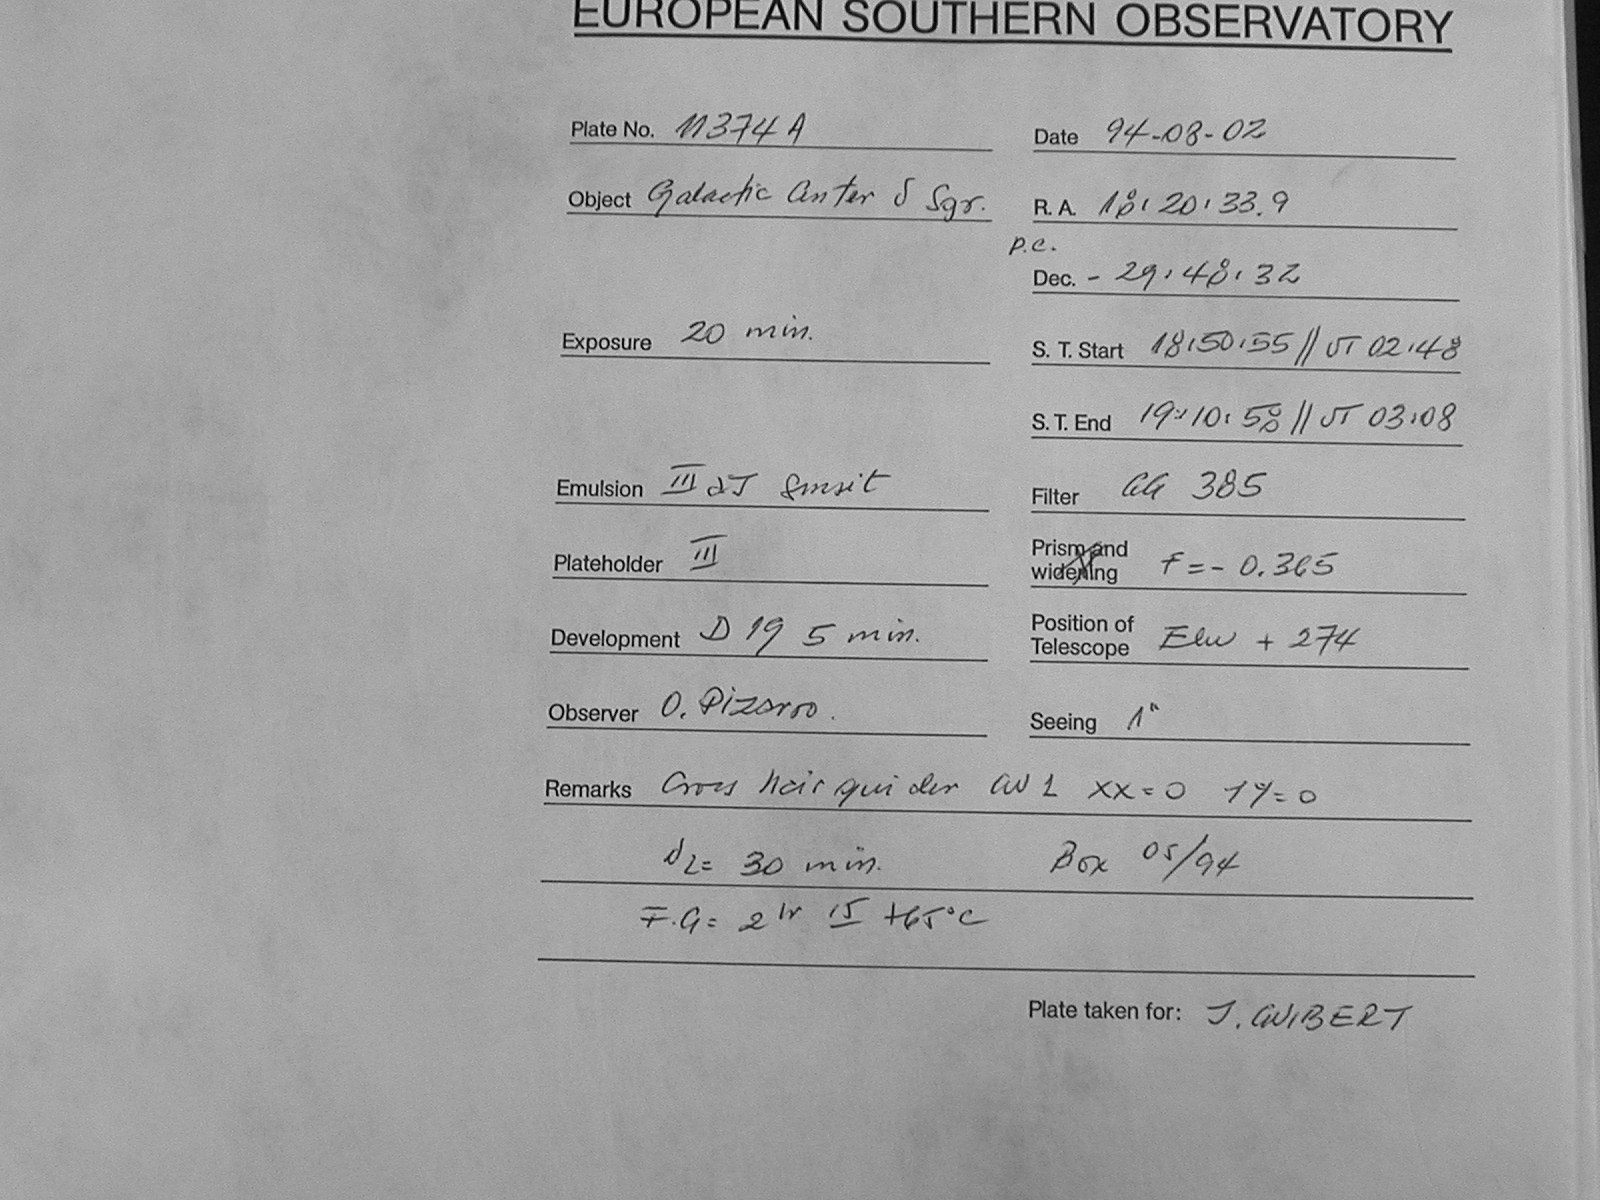 EUROPEAN SOUTHERN OBSERVATORY
Plate No. 11374 A
Date 94-08-02
Object Galactic Center δ Sgr.
R. A. 18:20:33.9
p.c.
Dec. - 29:48:32
Exposure 20 min.
S. T. Start 18:50:55 // UT 02:48
S. T. End 19:10:58 // UT 03:08
Emulsion III aJ Sensit
Filter GG 385
Plateholder III
Prism and widening F = - 0.365
Development D 19 5 min.
Position of Telescope Elw + 274
Observer O. Pizarro.
Seeing 1"
Remarks Cross hair guider GW 1 XX = 0 YY = 0
30 min. Box 05/94
F.G = 2 hr 15 +65°C
Plate taken for: J. GUIBERT